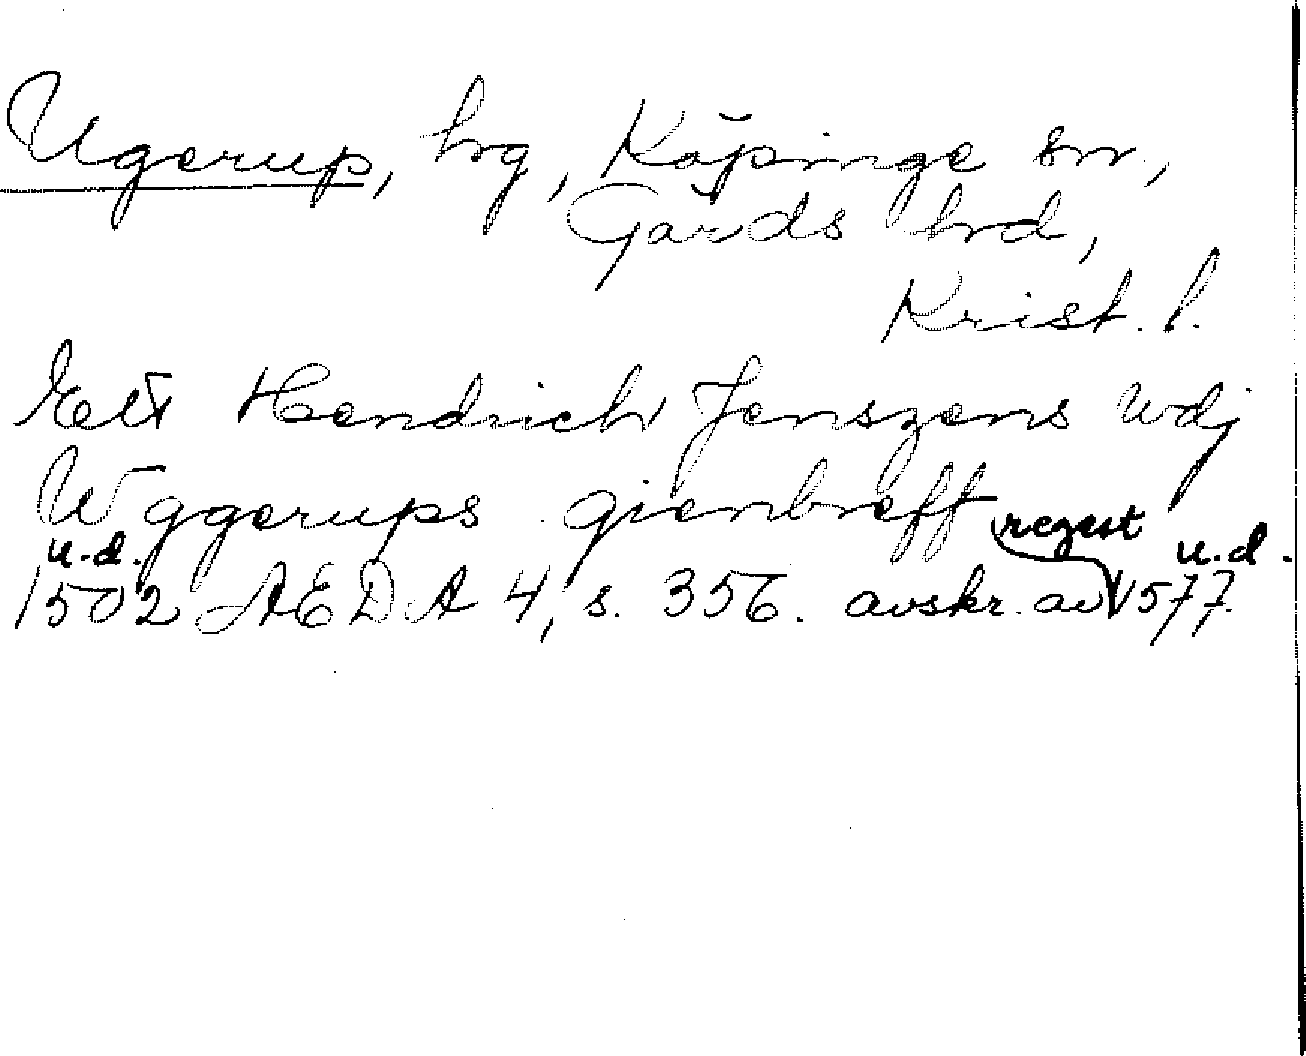 Ugerup, hrg, Köpinge sn.,
Gärds hrd,
Krist. l.
Ett Hendrich Jenszens wdj
Wggerups gienbreff
u.d. regest u.d.
1502 AEDA 4, s. 356. avskr. av 1577.